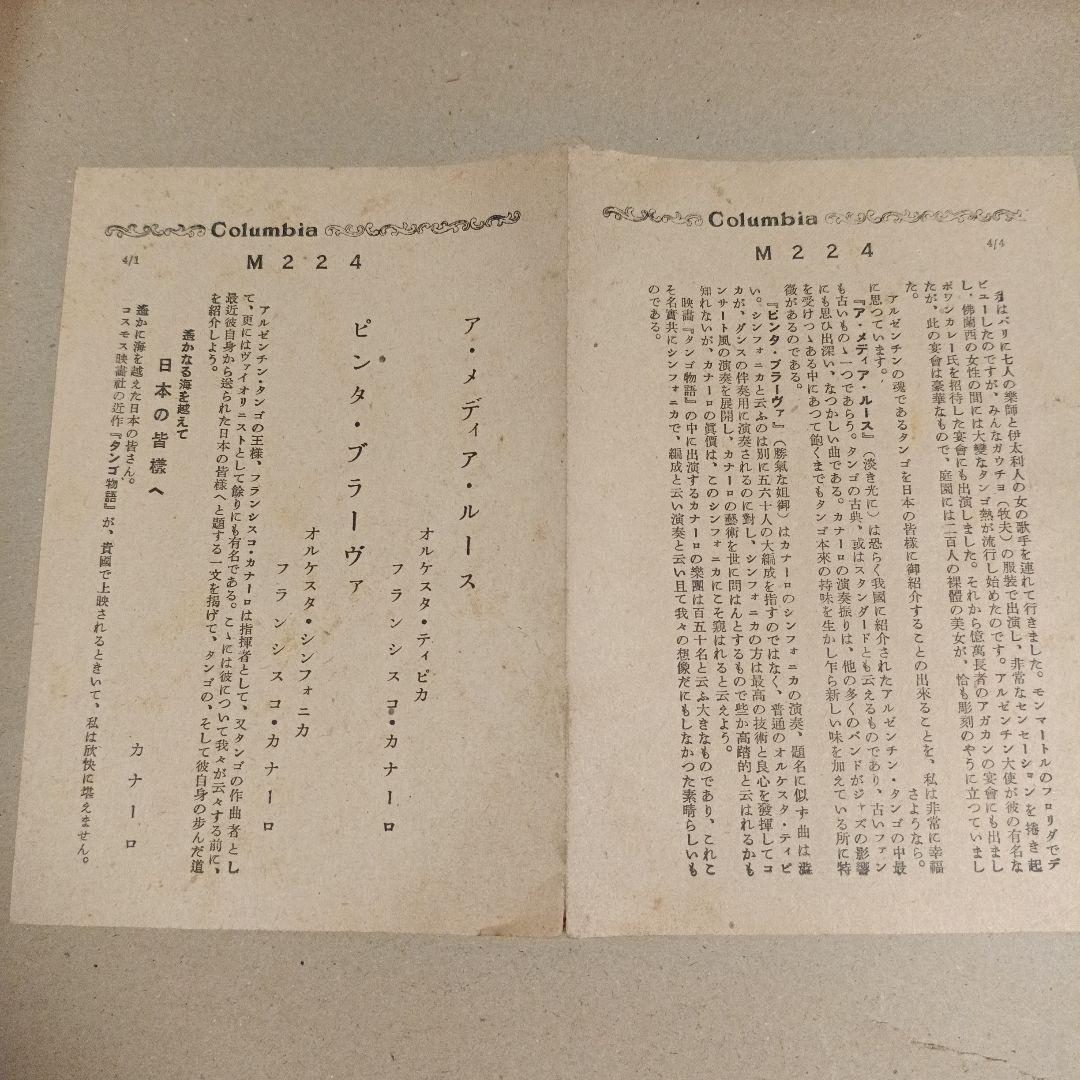 Columbia
4/1
M224
ア・メディア・ルース
オルケスタ・ティピカ
フランシスコ・カナーロ
ピンタ・ブラーヴァ
オルケスタ・シンフォニカ
フランシスコ・カナーロ
アルゼンチン・タンゴの王様、フランシスコ・カナーロは指揮者として、又タンゴの作曲者とし
て、更にはヴァイオリニストとして餘りにも有名である。こゝには彼について我々が云々する前に、
最近彼自身から送られた日本の皆様へと題する一文を掲げて、タンゴの、そして彼自身の歩んだ道
を紹介しよう。
遙かなる海を越えて
日本の皆様へ
カナーロ
遙かに海を越えた日本の皆さん。
コスモス映畫社の近作『タンゴ物語』が、貴國で上映されるときいて、私は欣快に堪えません。
Columbia
4/4
M224
私はパリに七人の樂師と伊太利人の女の歌手を連れて行きました。モンマートルのフロリダでデ
ビューしたのですが、みんなガウチョ（牧夫）の服装で出演し、非常なセンセーションを捲き起
し、佛蘭西の女性の間には大變なタンゴ熱が流行し始めたのです。アルゼンチン大使が彼の有名な
ポワンカレー氏を招待した宴會にも出演しました。それから億萬長者のアガカンの宴會にも出まし
たが、此の宴會は豪華なもので、庭園には二百人の裸體の美女が、恰も彫刻のやうに立つていまし
た。
アルゼンチンの魂であるタンゴを日本の皆様に御紹介することの出來ることを、私は非常に幸福
に思つています。
さようなら。
『ア・メディア・ルース』（淡き光に）は恐らく我國に紹介されたアルゼンチン・タンゴの中最
も古いものゝ一つであらう。タンゴの古典、或はスタンダードとも云えるものであり、古いファン
にも思ひ出深い、なつかしい曲である。カナーロの演奏振りは、他の多くのバンドがジャズの影響
を受けつゝある中にあつて飽くまでもタンゴ本來の持味を生かし乍ら新しい味を加えている所に特
徴があるのである。
『ピンタ・ブラーヴァ』（勝氣な姐御）はカナーロのシンフォニカの演奏、題名に似す曲は澁
い。シンフォニカと云ふのは別に五六十人の大編成を指すのではなく、普通のオルケスタ・ティピ
カが、ダンスの伴奏用に演奏されるのに對し、シンフォニカの方は最高の技術と良心を發揮してコ
ンサート風の演奏を展開し、カナーロの藝術を世に問はんとするもので些か高踏的と云はれるかも
知れないが、カナーロの眞價は、このシンフォニカにこそ窺はれると云えよう。
映畫『タンゴ物語』の中に出演するカナーロの樂團は百五十名と云ふ大きなものであり、これこ
そ名實共にシンフォニカで、編成と云い演奏と云い且て我々の想像だにもしなかつた素晴らしいも
のである。